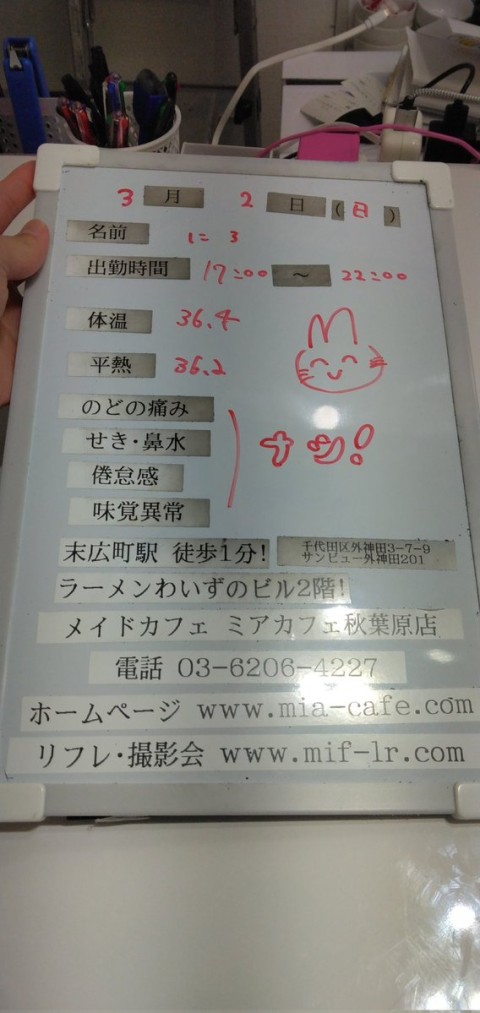 3月 2日(日)
名前 にこ
出勤時間 17:00 ～ 22:00
体温 36.4
平熱 36.2
のどの痛み
せき・鼻水
倦怠感
味覚異常
ナシ!
末広町駅 徒歩1分!
千代田区外神田3-7-9
サンビュー外神田201
ラーメンわいずのビル2階!
メイドカフェ ミアカフェ秋葉原店
電話 03-6206-4227
ホームページ www.mia-cafe.com
リフレ・撮影会 www.mif-lr.com